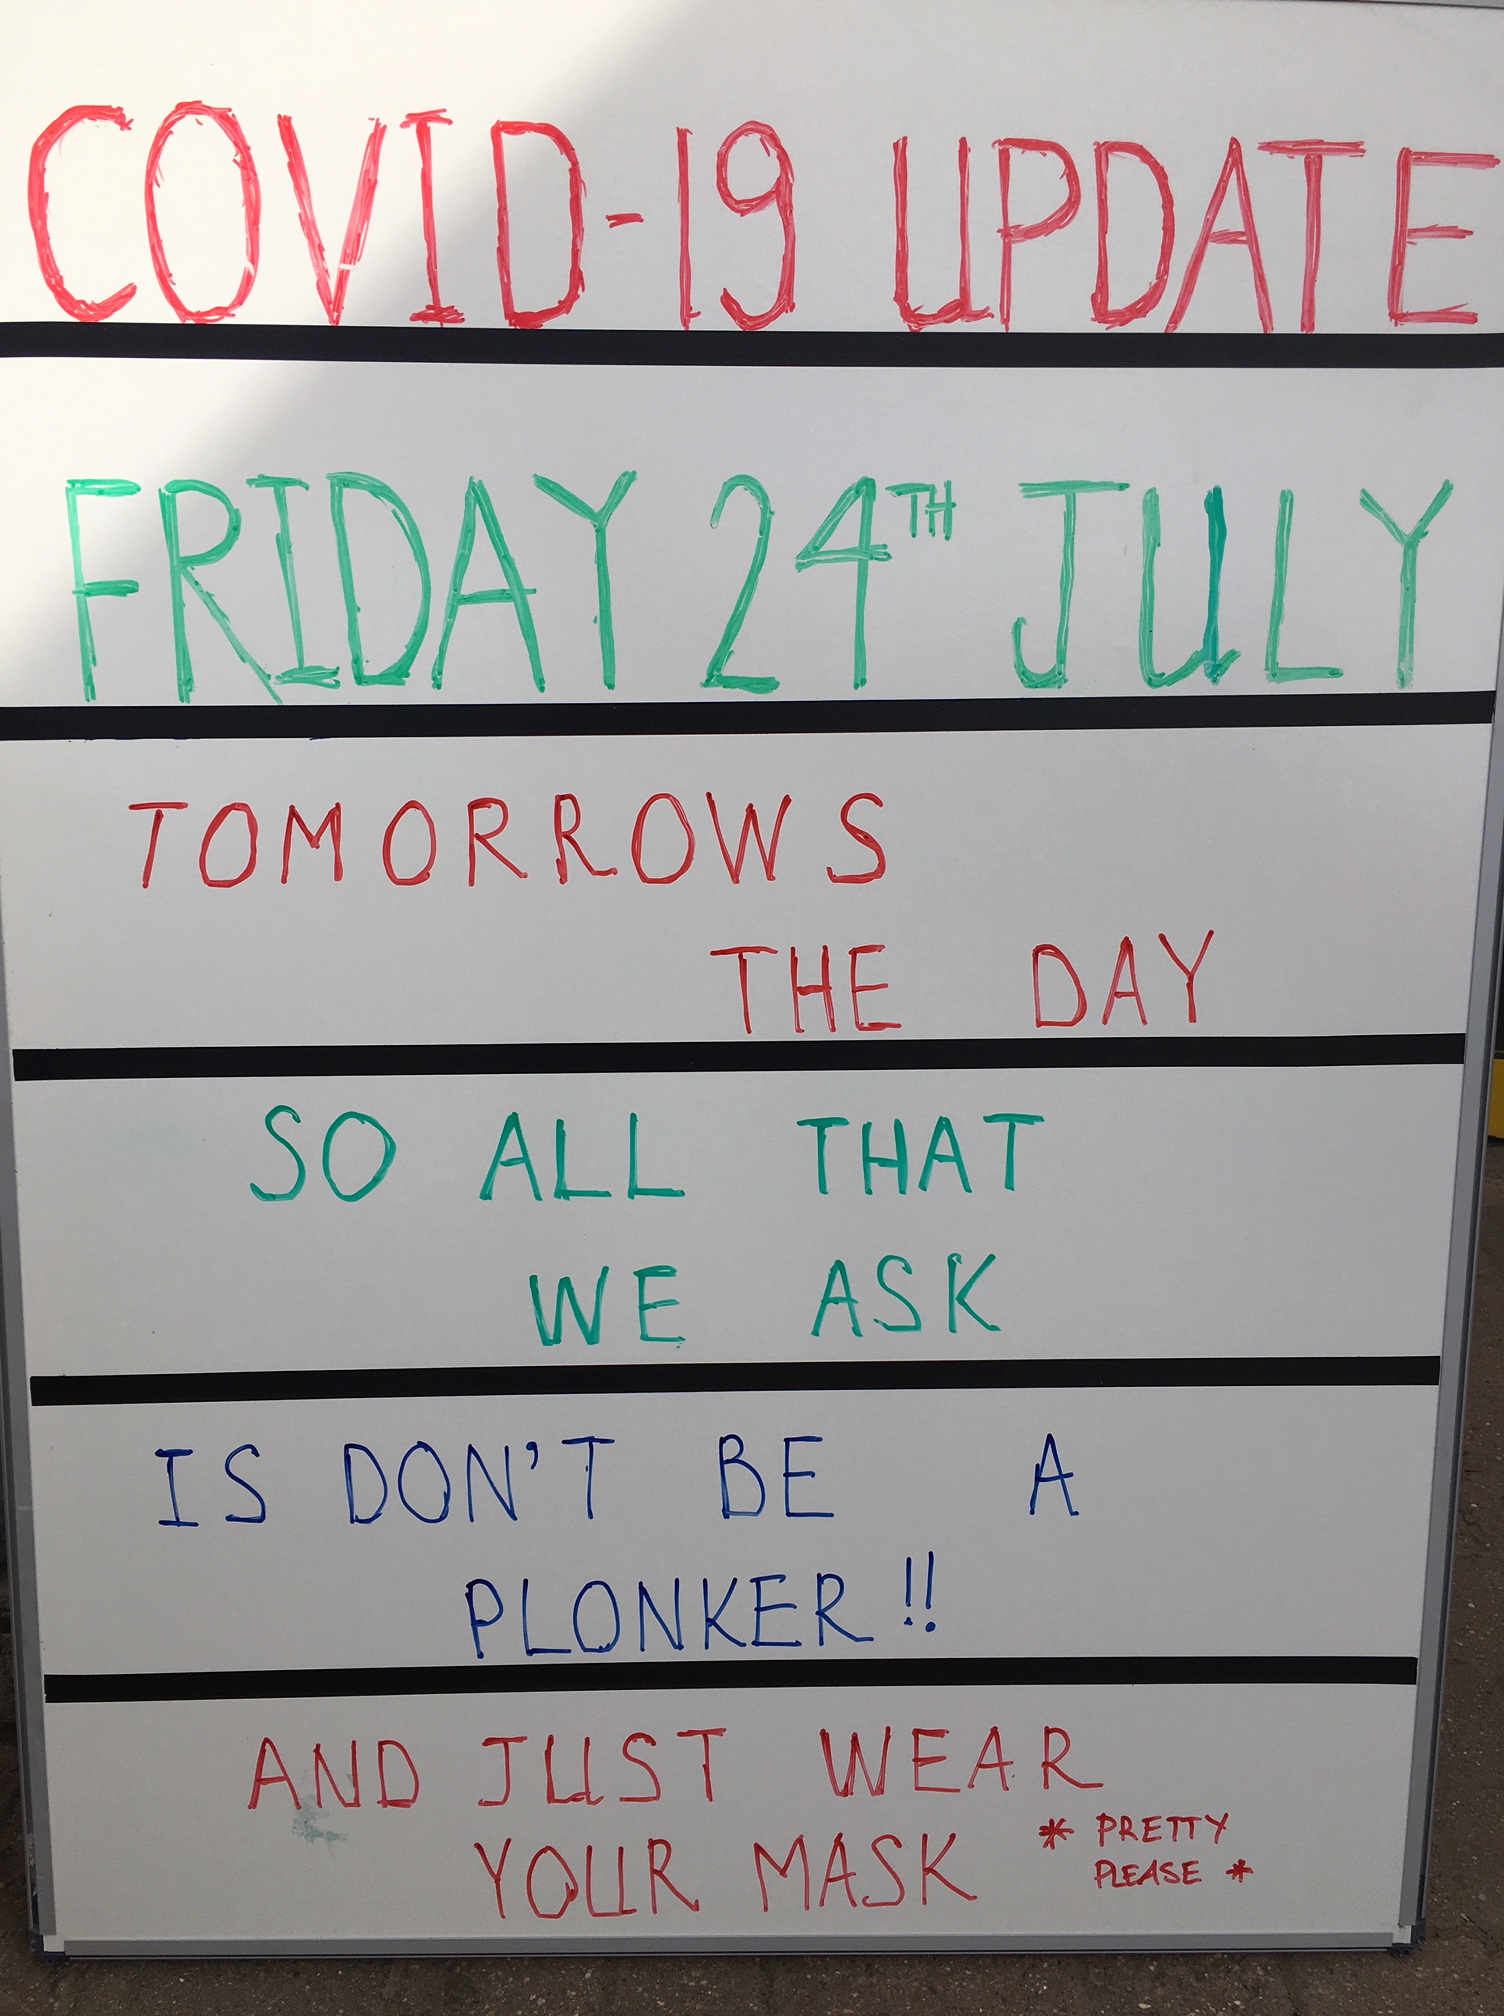 COVID-19 UPDATE
FRIDAY 24TH JULY
TOMORROWS
THE DAY
SO ALL THAT
WE ASK
IS DON'T BE A
PLONKER!!
AND JUST WEAR
YOUR MASK * PRETTY
PLEASE *